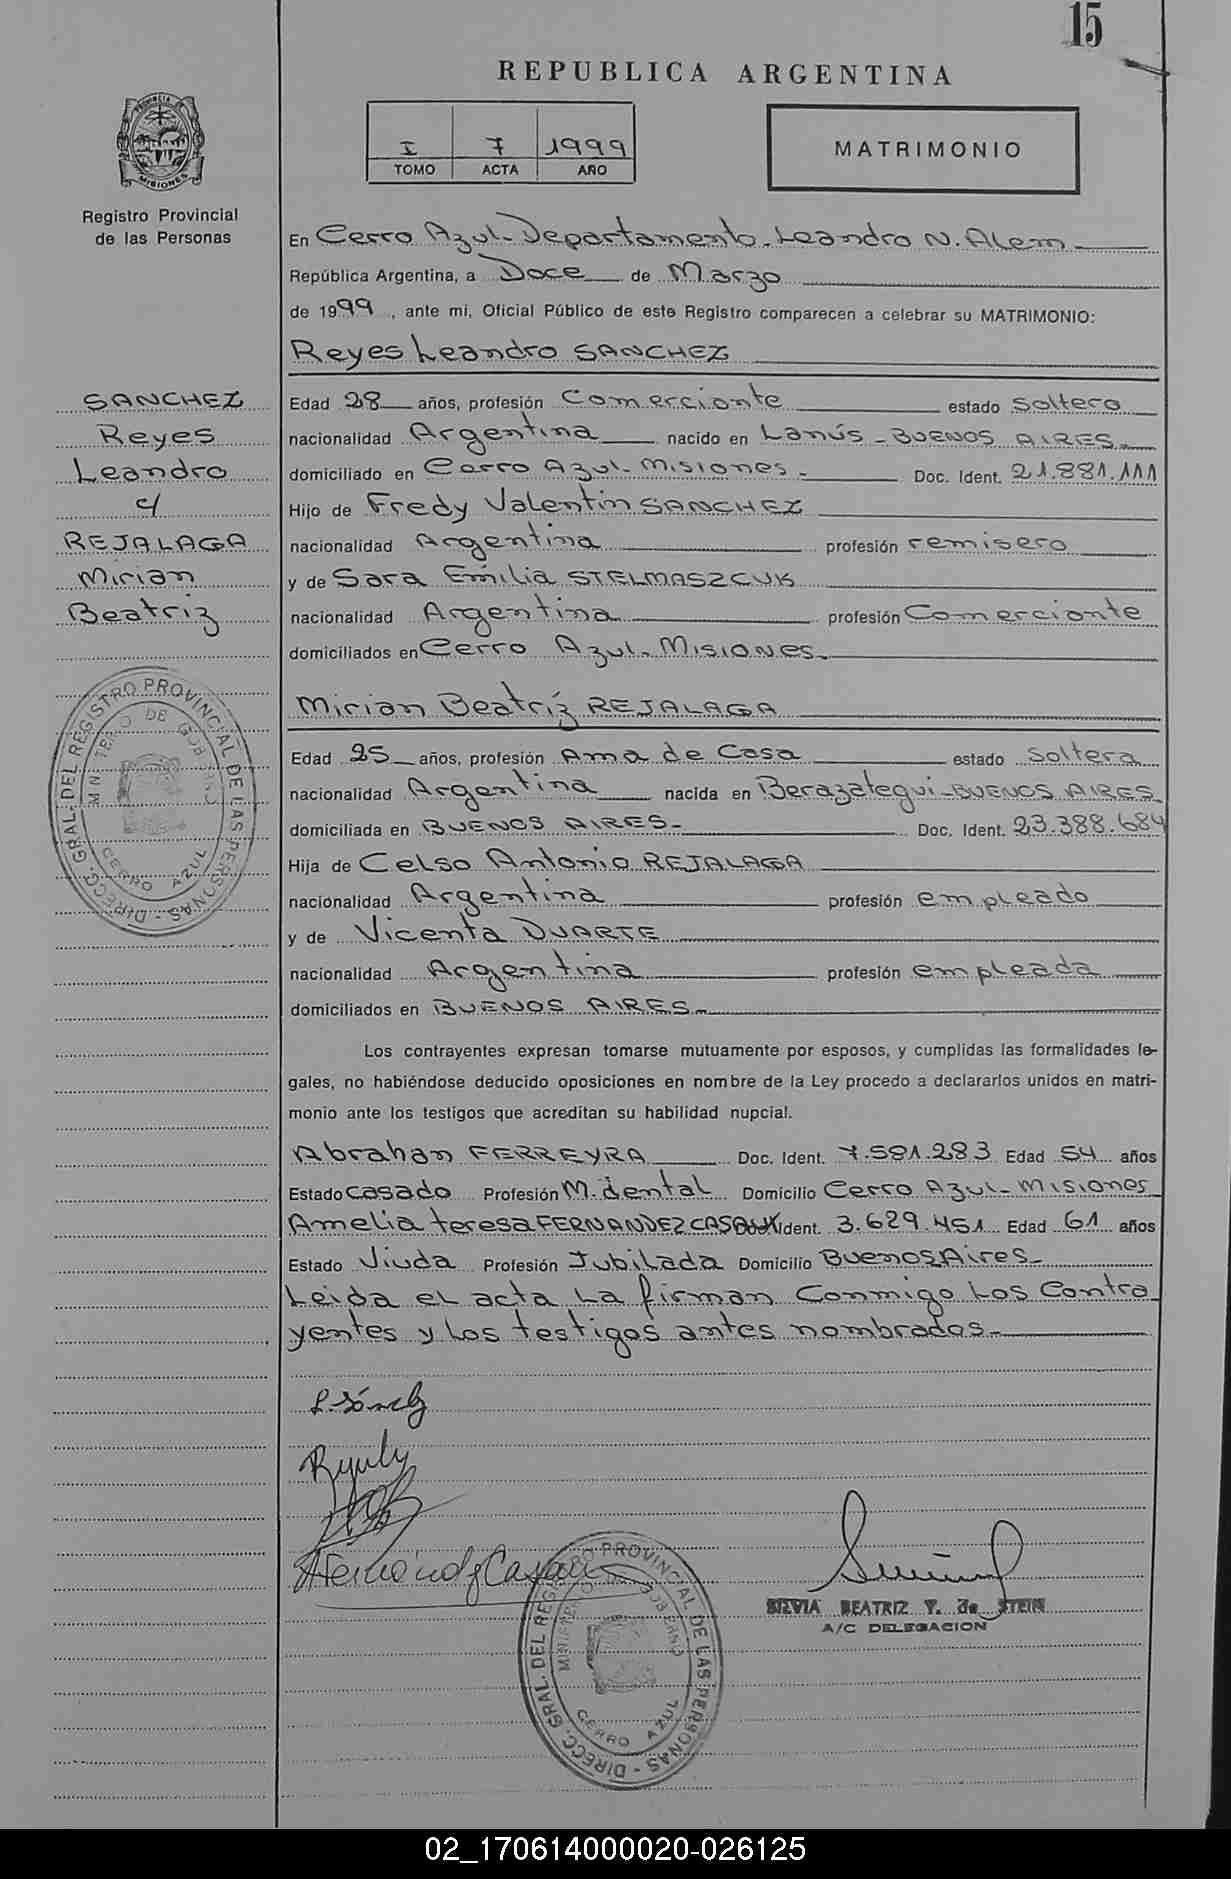 15
REPUBLICA ARGENTINA
I 7 1999
TOMO ACTA AÑO
MATRIMONIO
PROVINCIA DE
MISIONES
Registro Provincial
de las Personas
En Cerro Azul-Departamento-Leandro N. Alem
República Argentina, a Doce de Marzo
de 1999, ante mi, Oficial Público de este Registro comparecen a celebrar su MATRIMONIO:
Reyes Leandro SANCHEZ
SANCHEZ
Reyes
Leandro
c/
REJALAGA
Mirian
Beatriz
Edad 28 años, profesión Comerciante estado soltero
nacionalidad Argentina nacido en Lanús-BUENOS AIRES-
domiciliado en Cerro Azul-Misiones- Doc. Ident. 21.881.111
Hijo de Fredy Valentin SANCHEZ
nacionalidad Argentina profesión remisero
y de Sara Emilia STELMASZCUK
nacionalidad Argentina profesión Comerciante
domiciliados en Cerro Azul-Misiones-
Mirian Beatríz REJALAGA
Edad 25 años, profesión Ama de Casa estado soltera
nacionalidad Argentina nacida en Berazategui-BUENOS AIRES
domiciliada en BUENOS AIRES- Doc. Ident. 23.388.684
Hija de Celso Antonio REJALAGA
nacionalidad Argentina profesión empleado
y de Vicenta DUARTE
nacionalidad Argentina profesión empleada
domiciliados en BUENOS AIRES-
DIRECC. GRAL. DEL REGISTRO PROVINCIAL DE LAS PERSONAS
MINISTERIO DE GOBIERNO
CERRO AZUL
Los contrayentes expresan tomarse mutuamente por esposos, y cumplidas las formalidades le-
gales, no habiéndose deducido oposiciones en nombre de la Ley procedo a declararlos unidos en matri-
monio ante los testigos que acreditan su habilidad nupcial.
Abrahan FERREYRA Doc. Ident. 7.581.283 Edad 54 años
Estado casado Profesión M. dental Domicilio Cerro Azul-Misiones
Amelia teresa FERNANDEZ Ident. 3.629.451 Edad 61 años
Estado Viuda Profesión Jubilada Domicilio Buenos Aires-
Leida el acta la firman Conmigo Los Contra
yentes y Los testigos antes nombrados-
DIRECC. GRAL. DEL REGISTRO PROVINCIAL DE LAS PERSONAS
MINISTERIO GOBIERNO
CERRO AZUL
SILVIA BEATRIZ Y. de STEIN
A/C DELEGACION
02_170614000020-026125